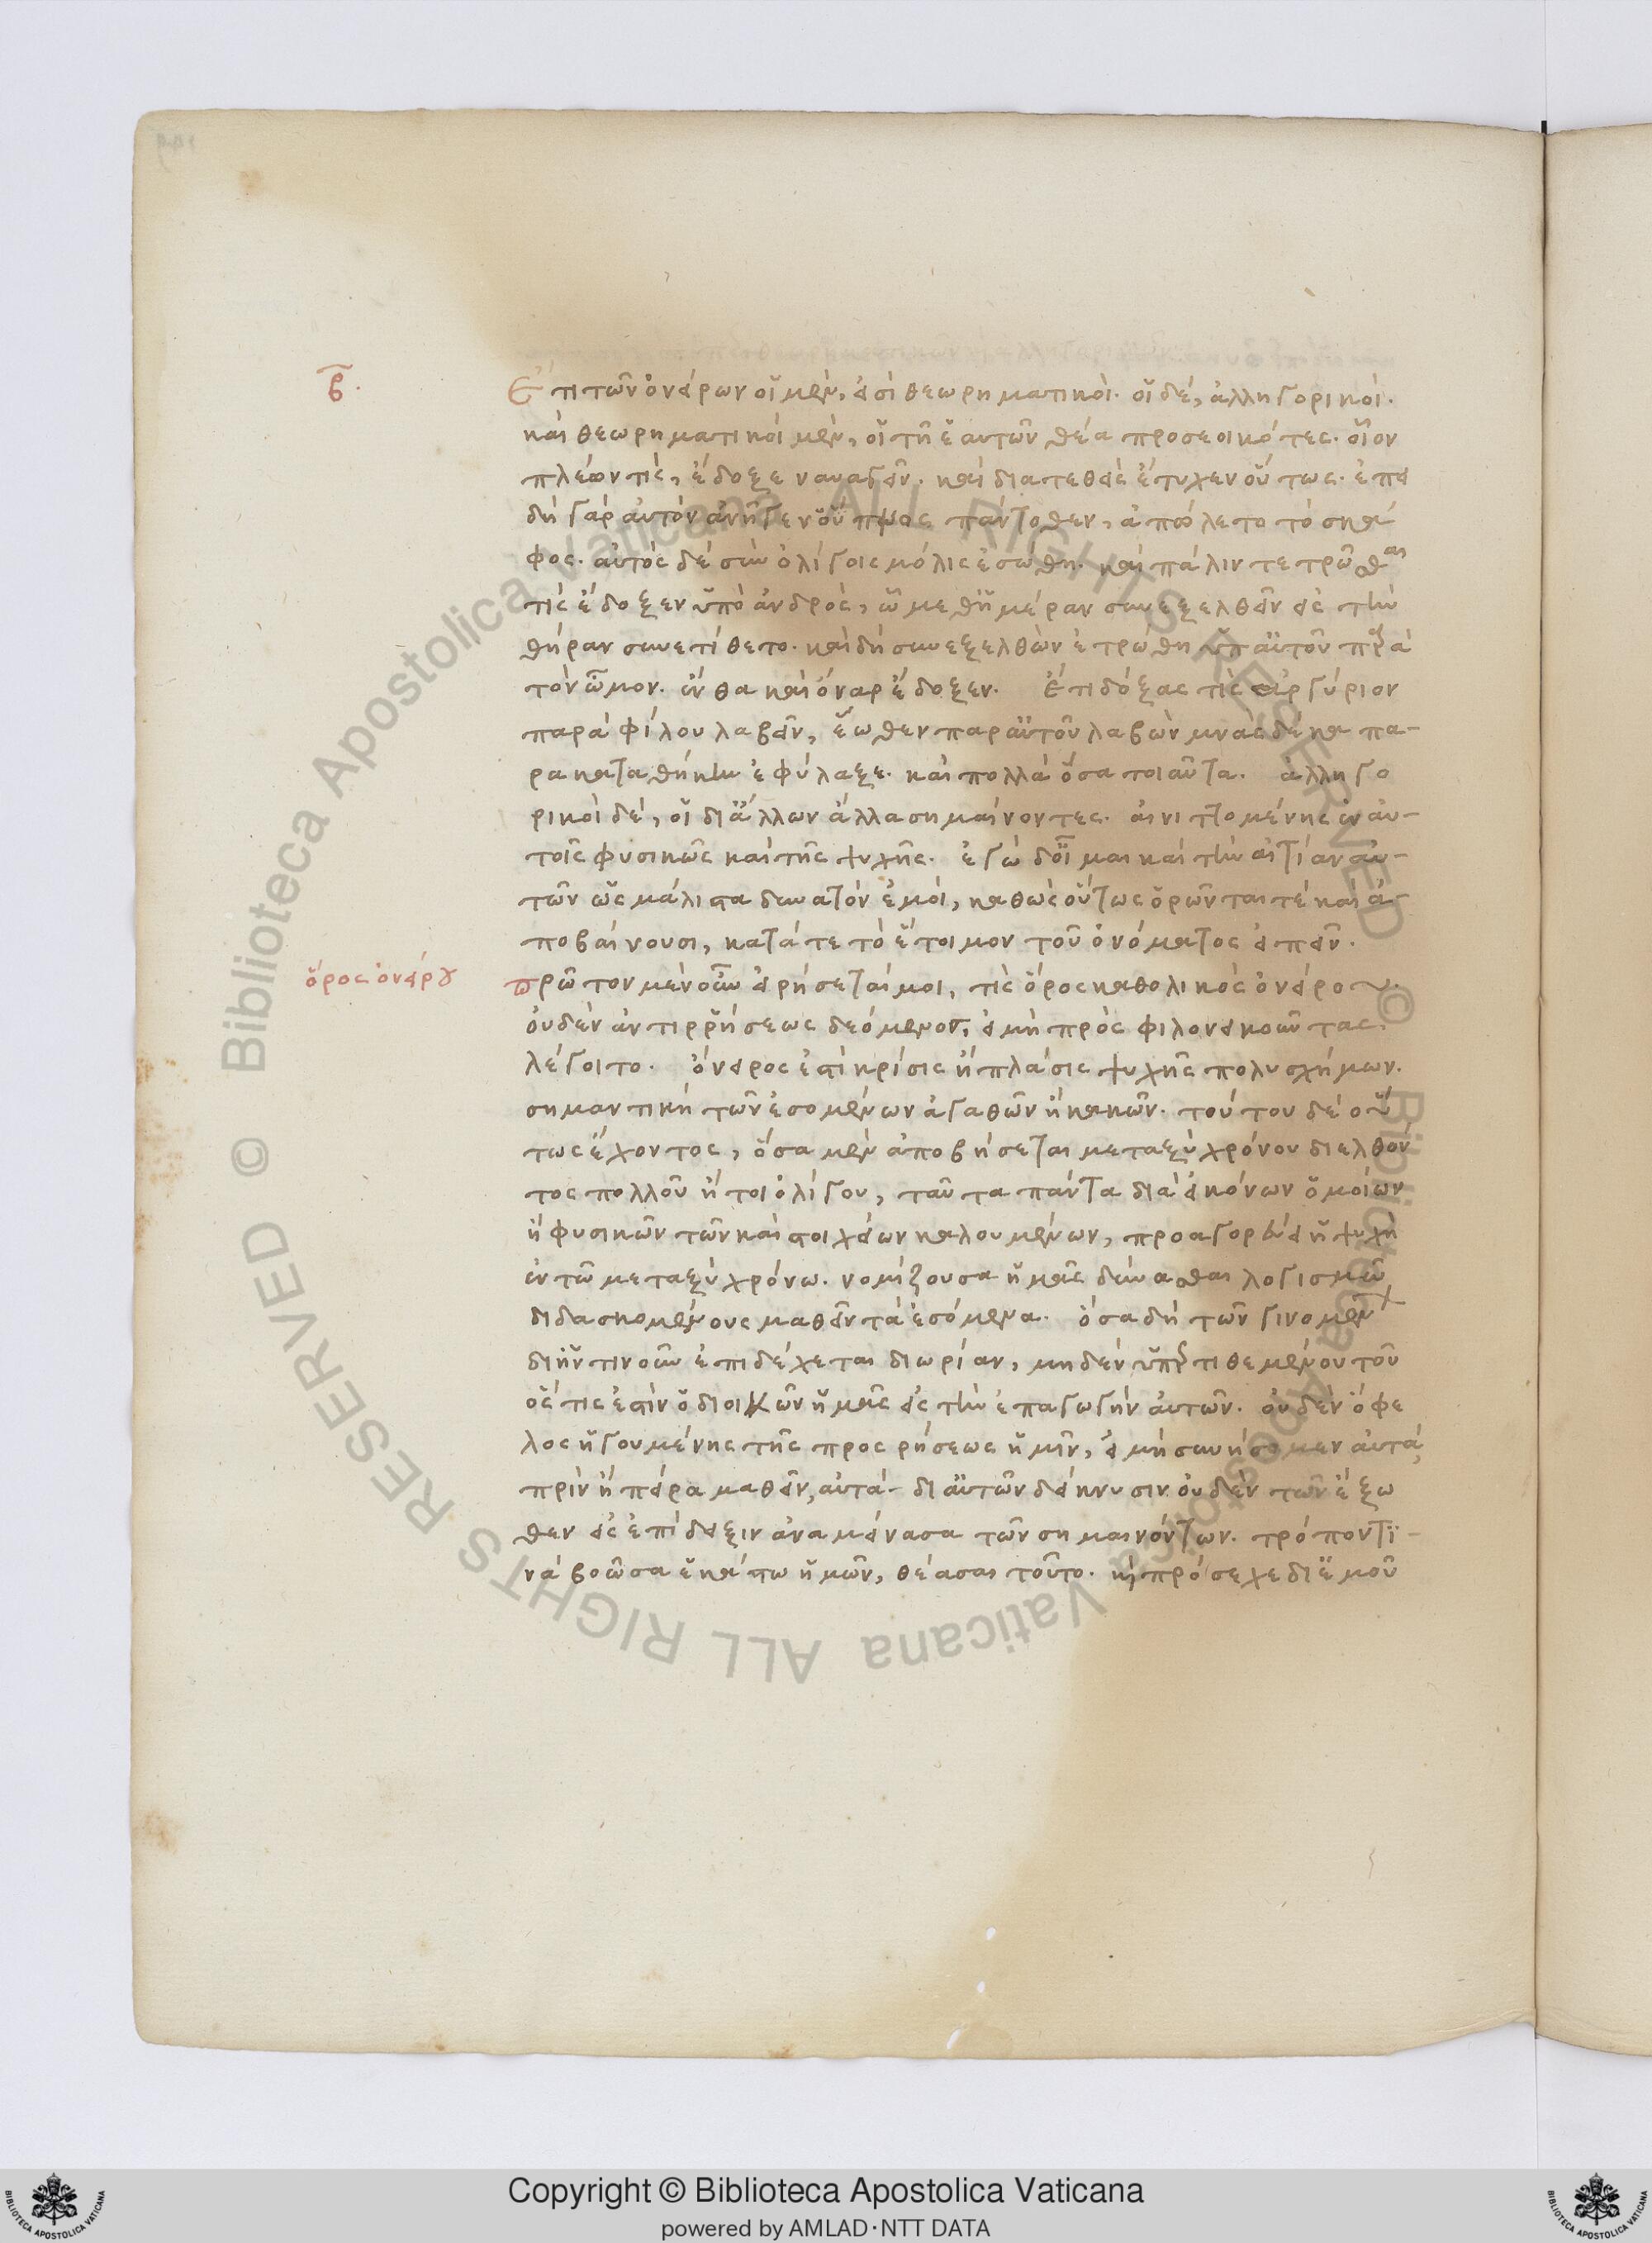 β.
Ἔτι τῶν ὀνείρων οἵ μέν, εἰσὶ θεωρηματικοί. οἵ δέ, ἀλληγορικοί.
καὶ θεωρηματικοὶ μέν, οἵ τῆ ἑαυτῶν θέα προσεοικότες. οἷον
πλέων τίς, ἔδοξε ναυαγεῖν. καὶ διατεθεὶς ἔτυχεν οὕτως. ἐπει
δὴ γὰρ αὐτὸν ἀνῆκεν ὁ ὕπνος πάντοθεν, ἀπώλετο τὸ σκά
φος. αὐτὸς δὲ σὺν ὀλίγοις μόλις ἐσώθη. καὶ πάλιν τετρῶσθαι
τίς ἔδοξεν ὑπὸ ἀνδρὸς, ὧ μεθ' ἡμέραν συνεξελθεῖν εἰς τὴν
θήραν συνετίθετο. καὶ δὴ συνεξελθὼν ἐτρώθη ὑπ' αὐτοῦ περὶ
τὸν ὦμον. ἔνθα καὶ ὄναρ ἔδοξεν. Ἔτι δόξας τὶς ἀργύριον
παρὰ φίλου λαβεῖν, ἕωθεν παρ' αὐτοῦ λαβὼν μνᾶς δέκα πα-
ρακαταθήκην ἐφύλαξε. καὶ πολλὰ ὅσα τοιαῦτα. ἀλληγο
ρικοὶ δέ, οἵ δι' ἄλλων ἄλλα σημαίνοντες. αἰνιττομένης ἐν αὐ-
τοῖς φυσικῶς καὶ τῆς ψυχῆς. ἐγὼ δ' οἶμαι καὶ τὴν αἰτίαν αὐ-
τῶν ὡς μάλιστα δυνατὸν ἐμοί, καθὼς οὕτως ὁρῶνται τὲ καὶ ἀ-
ποβαίνουσι, κατά τε τὸ ἕτοιμον τοῦ ὀνόματος εἰπεῖν.
ὅρος ὀνείρου
πρῶτον μὲν οὖν εἰρήσεταί μοι, τὶς ὅρος καθολικὸς ὀνείρου.
οὐδὲν ἀντιρρήσεως δεόμενος, εἰ μὴ πρὸς φιλονεικοῦντας
λέγοιτο. ὄνειρος ἐστὶ κρίσις ἢ πλάσις ψυχῆς πολυσχήμων.
σημαντικὴ τῶν ἐσομένων ἀγαθῶν ἢ κακῶν. τούτου δὲ οὕ
τως ἔχοντος, ὅσα μὲν ἀποβήσεται μεταξὺ χρόνου διελθόν
τος πολλοῦ ἤτοι ὀλίγου, ταῦτα πάντα διὰ εἰκόνων ὁμοίων
ἢ φυσικῶν τῶν καὶ στοιχείων καλουμένων, προαγορεύει ἡ ψυχὴ
ἐν τῶ μεταξὺ χρόνω. νομίζουσα ἡμᾶς δύνασθαι λογισμῶ
διδασκομένους μαθεῖν τὰ ἐσόμενα. ὅσα δὴ τῶν γινομένων
δι' ἥντιν' οὖν ἐπιδέχεται διωρίαν, μηδὲν ὑπερτιθεμένου τοῦ
ὅς τις ἐστὶν ὁ διοικῶν ἡμᾶς εἰς τὴν ἐπαγωγὴν αὐτῶν. οὐδὲν ὄφε
λος ἡγουμένης τῆς προςρήσεως ἡμῖν, εἰ μὴ συνήσομεν αὐτά,
πρὶν ἢ πείρα μαθεῖν, αὐτά. δι' αὐτῶν δείκνυσιν οὐδὲν τῶν ἔξω
θεν εἰς ἐπίδειξιν ἀναμείνασα τῶν σημαινόντων. τρόπον τι-
νὰ βοῶσα ἑκάστω ἡμῶν, θέασαι τοῦτο. καὶ πρόσεχε δι' ἐμοῦ
Copyright © Biblioteca Apostolica Vaticana
powered by AMLAD·NTT DATA